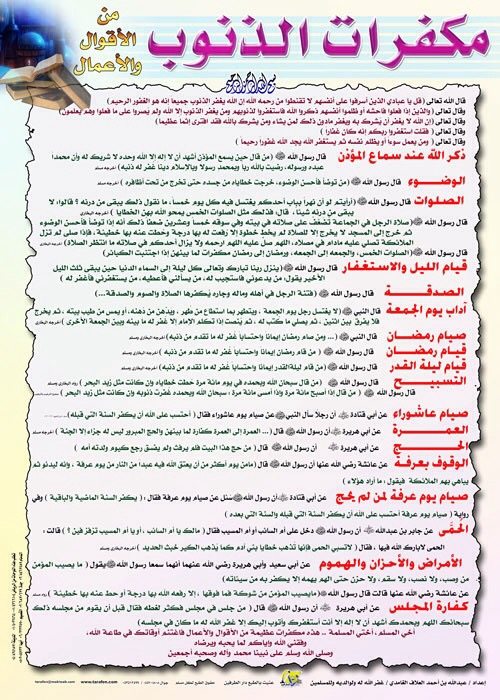 مكفرات الذنوب
من
الأقوال
والأعمال
قال الله تعالى (قل يا عبادي الذين أسرفوا على أنفسهم لا تقنطوا من رحمة الله إن الله يغفر الذنوب جميعا إنه هو الغفور الرحيم)
وقال تعالى (والذين إذا فعلوا فاحشة أو ظلموا أنفسهم ذكروا الله فاستغفروا لذنوبهم ومن يغفر الذنوب إلا الله ولم يصروا على ما فعلوا وهم يعلمون)
وقال تعالى (إن الله لا يغفر أن يشرك به ويغفر مادون ذلك لمن يشاء ومن يشرك بالله فقد افترى إثما عظيما)
وقال تعالى ( فقلت استغفروا ربكم إنه كان غفارا )
وقال تعالى ( ومن يعمل سوءا أو يظلم نفسه ثم يستغفر الله يجد الله غفورا رحيما )
ذكر الله عند سماع المؤذن قال رسول الله ﷺ (من قال حين يسمع المؤذن أشهد أن لا إله إلا الله وحده لا شريك له وأن محمداً
عبده ورسوله، رضيت بالله ربا وبمحمد رسولا وبالإسلام دينا غفر له ذنبه)
الوضوء قال رسول الله ﷺ (من توضأ فأحسن الوضوء، خرجت خطاياه من جسده حتى تخرج من تحت أظافره)
الصلوات قال رسول الله ﷺ (أرأيتم لو أن نهرا بباب أحدكم يغتسل فيه كل يوم خمسا، ما تقول ذلك يبقي من درنه ؟ قالوا: لا
يبقي من درنه شيئا، قال: فذلك مثل الصلوات الخمس يمحو الله بهن الخطايا)
قال رسول الله ﷺ (صلاة الرجل في الجماعة تضعف على صلاته في بيته وفي سوقه خمسا وعشرين ضعفا ذلك أنه إذا توضأ فأحسن الوضوء
ثم خرج إلى المسجد لا يخرجه إلا الصلاة لم يخط خطوة إلا رفعت له بها درجة وحطت عنه بها خطيئة، فإذا صلى لم تزل
الملائكة تصلي عليه مادام في مصلاه، اللهم صل عليه اللهم ارحمه ولا يزال أحدكم في صلاة ما انتظر الصلاة)
قال رسول الله ﷺ (الصلوات الخمس، والجمعة إلى الجمعة، ورمضان إلى رمضان مكفرات لما بينهن إذا اجتنبت الكبائر)
قيام الليل والاستغفار قال رسول الله ﷺ (ينزل ربنا تبارك وتعالى كل ليلة إلى السماء الدنيا حين يبقى ثلث الليل
الآخير يقول: من يدعوني فأستجيب له، من يسألني فأعطيه، من يستغفرني فأغفر له)
الصدقة قال رسول الله ﷺ (فتنة الرجل في أهله وماله وجاره يكفرها الصلاة والصوم والصدقة...)
آداب يوم الجمعة قال النبي ﷺ (لا يغتسل رجل يوم الجمعة، ويتطهر بما استطاع من طهر، ويدهن من دهنه، أو يمس من طيب بيته، ثم يخرج
فلا يفرق بين اثنين، ثم يصلي ما كتب له، ثم ينصت إذا تكلم الإمام إلا غفر له ما بينه وبين الجمعة الأخرى)
صيام رمضان قال النبي ﷺ (... ومن صام رمضان إيمانا واحتسابا غفر له ما تقدم من ذنبه)
قيام رمضان قال رسول الله ﷺ (من قام رمضان إيمانا واحتسابا غفر له ما تقدم من ذنبه)
قيام ليلة القدر قال رسول الله ﷺ (من قام ليلة القدر إيمانا واحتسابا غفر له ما تقدم من ذنبه)
التسبيح قال رسول الله ﷺ (من قال سبحان الله وبحمده في يوم مائة مرة حطت خطاياه وإن كانت مثل زبد البحر)
قال رسول الله ﷺ (من قال إذا أصبح مائة مرة وإذا أمسى مائة مرة، سبحان الله وبحمده غفرت ذنوبه وإن كانت مثل زبد البحر)
صيام عاشوراء عن أبي قتادة أن رجلا سأل النبي ﷺ عن صيام يوم عاشوراء فقال (أحتسب على الله أن يكفر السنة التي قبله)
العمرة عن أبي هريرة أن رسول الله ﷺ قال (... العمرة إلى العمرة كفارة لما بينهن والحج المبرور ليس له جزاء إلا الجنة)
الحج عن أبي هريرة أن رسول الله ﷺ قال (من حج هذا البيت فلم يرفث ولم يفسق رجع كيوم ولدته أمه)
الوقوف بعرفة عن عائشة رضي الله عنها أن رسول الله ﷺ قال (مامن يوم أكثر من أن يعتق الله فيه عبدا من النار من يوم عرفة، وإنه ليدنو ثم
يباهي بهم الملائكة فيقول: ما أراد هؤلاء)
صيام يوم عرفة لمن لم يحج عن أبي قتادة أن رسول الله ﷺ سئل عن صيام يوم عرفة فقال: (يكفر السنة الماضية والباقية) وفي
رواية (صيام يوم عرفة أحتسب على الله أن يكفر السنة التي قبله والسنة التي بعده)
الحمى عن جابر بن عبدالله أن رسول الله ﷺ دخل على أم السائب أو أم المسيب فقال (مالك يا أم السائب، أو يا أم المسيب تزفزفين ؟) قالت:
الحمى لابارك الله فيها، فقال (لاتسبي الحمى فإنها تذهب خطايا بني آدم كما يذهب الكير خبث الحديد)
الأمراض والأحزان والهموم عن أبي سعيد وأبي هريرة رضي الله عنهما أنهما سمعا رسول الله ﷺ يقول (ما يصيب المؤمن
من وصب، ولا نصب، ولا سقم، ولا حزن حتى الهم يهمه إلا يكفر به من سيئاته)
عن عائشة رضي الله عنها قالت قال رسول الله ﷺ (مايصيب المؤمن من شوكة فما فوقها، إلا رفعه الله بها درجة أو حط عنه بها خطيئة)
كفارة المجلس عن أبي هريرة أن رسول الله ﷺ قال (من جلس في مجلس فكثر لغطه فقال قبل أن يقوم من مجلسه ذلك
سبحانك اللهم وبحمدك أشهد أن لا إله إلا أنت أستغفرك وأتوب إليك إلا غفر الله له ما كان في مجلسه)
أخي المسلم، أختي المسلمة .. هذه مكفرات عظيمة من الأقوال والأعمال فاغتنم أوقاتك في طاعة الله،
وفقني الله وإياكم لما يحبه ويرضاه
وصلى الله وسلم على نبينا محمد وآله وصحبه أجمعين
إعداد / عبدالله بن أحمد العلاف الغامدي / غفر الله له ولوالديه وللمسلمين
www.tarafen.com